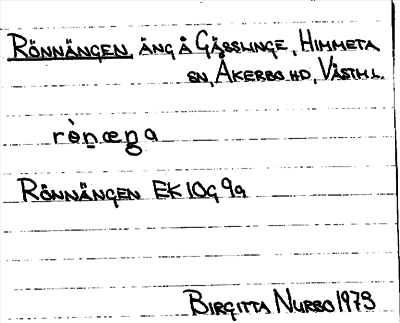 RÖNNÄNGEN, ÄNG Å GÄSSLINGE, HIMMETA
SN, ÅKERBO HD, VÄSTML.
RÖNNÄNGEN EK 10G 9a
BIRGITTA NURBO 1973